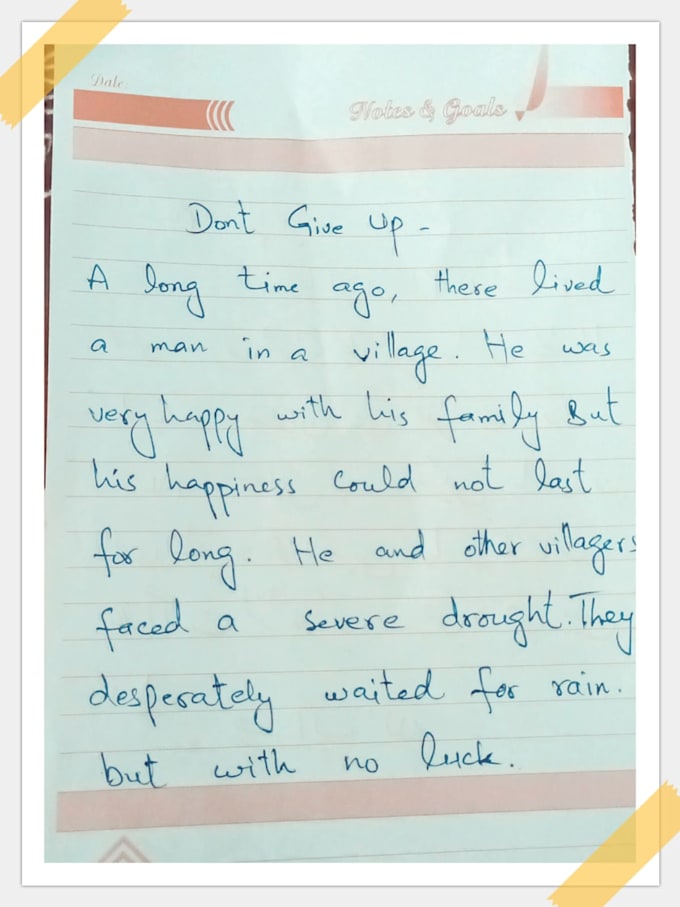 Date:
Notes & Goals
Dont Give up -
A long time ago, there lived
a man in a village. He was
very happy with his family But
his happiness could not last
for long. He and other villagers
faced a severe drought. They
desperately waited for rain.
but with no luck.